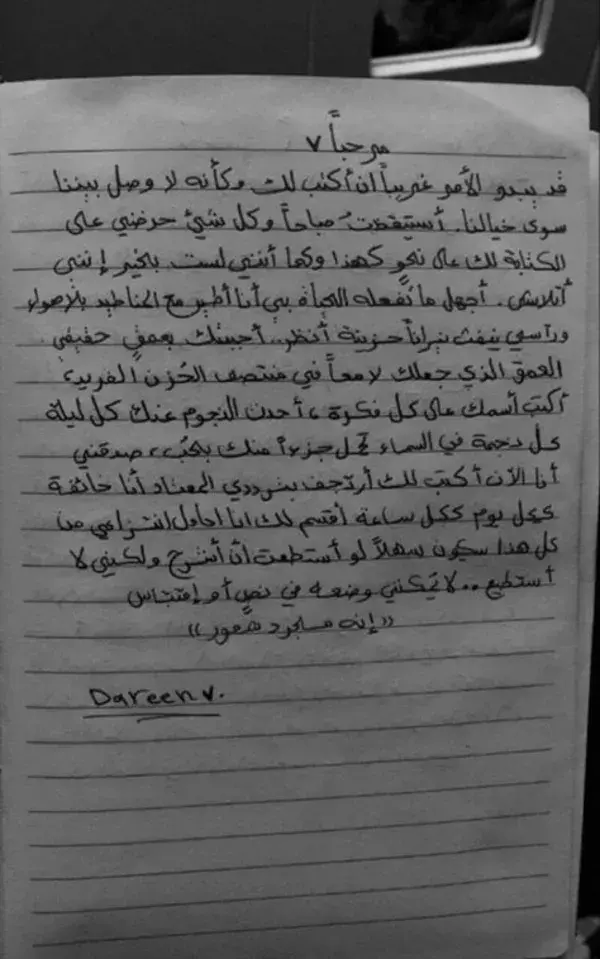 مرحباً ٧
قد يبدو الأمر غريباً ان أكتب لك وكأنه لا وصل بيننا
سوى خيالنا. أستيقظتُ صباحاً وكل شيئ حرضني على
الكتابة لك على نحوٍ كهذا وكما أنني لست بالخير إنني
أتلاشى. أجهل ما تفعله الحياة بي أنا أطير مع المناطيد بلا هواء
ورأسي ينفث نيراناً حزينة أنظر.. أحببتك بعمقٍ حقيقي
العمق الذي جعلك لامعاً في منتصف الحُزن الفريد،
أكتب أسمك على كل فكرة، أحدث النجوم عنك كل ليلة
كل نجمة في السماء تحمل جزءاً منك بحُب، صدقني
أنا الآن أكتب لك أرتجف بترددي المعتاد أنا خائفة
ككل يوم ككل ساعة أقسم لك انا احاول انتزاعي من
كل هذا سيكون سهلاً لو أستطعت أن أشرح ولكنني لا
أستطيع.. لا يمكنني وضعه في نصٍ أو إقتباس
«إنه مجرد شعور»
Dareen٧.